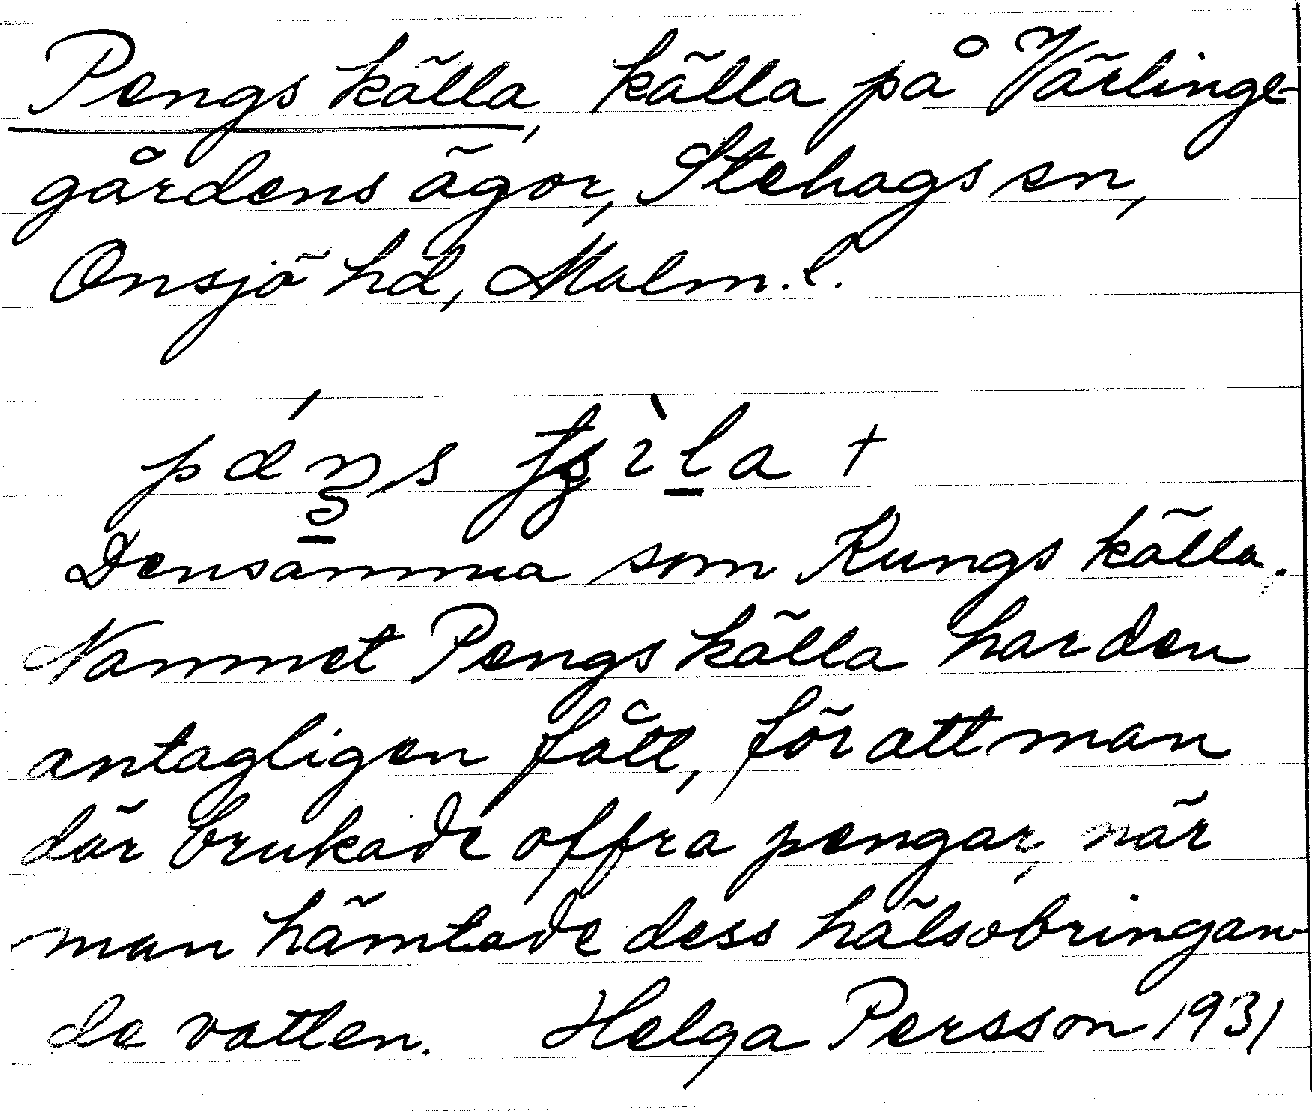 Pengs källa, källa på Värlinge-
gårdens ägor, Stehags sn,
Onsjö hd, Malm. l.
Densamma som Kungs källa.
Namnet Pengs källa har den
antagligen fått, för att man
där brukade offra pengar, när
man hämtade dess hälsobringan-
de vatten. Helga Persson 1931